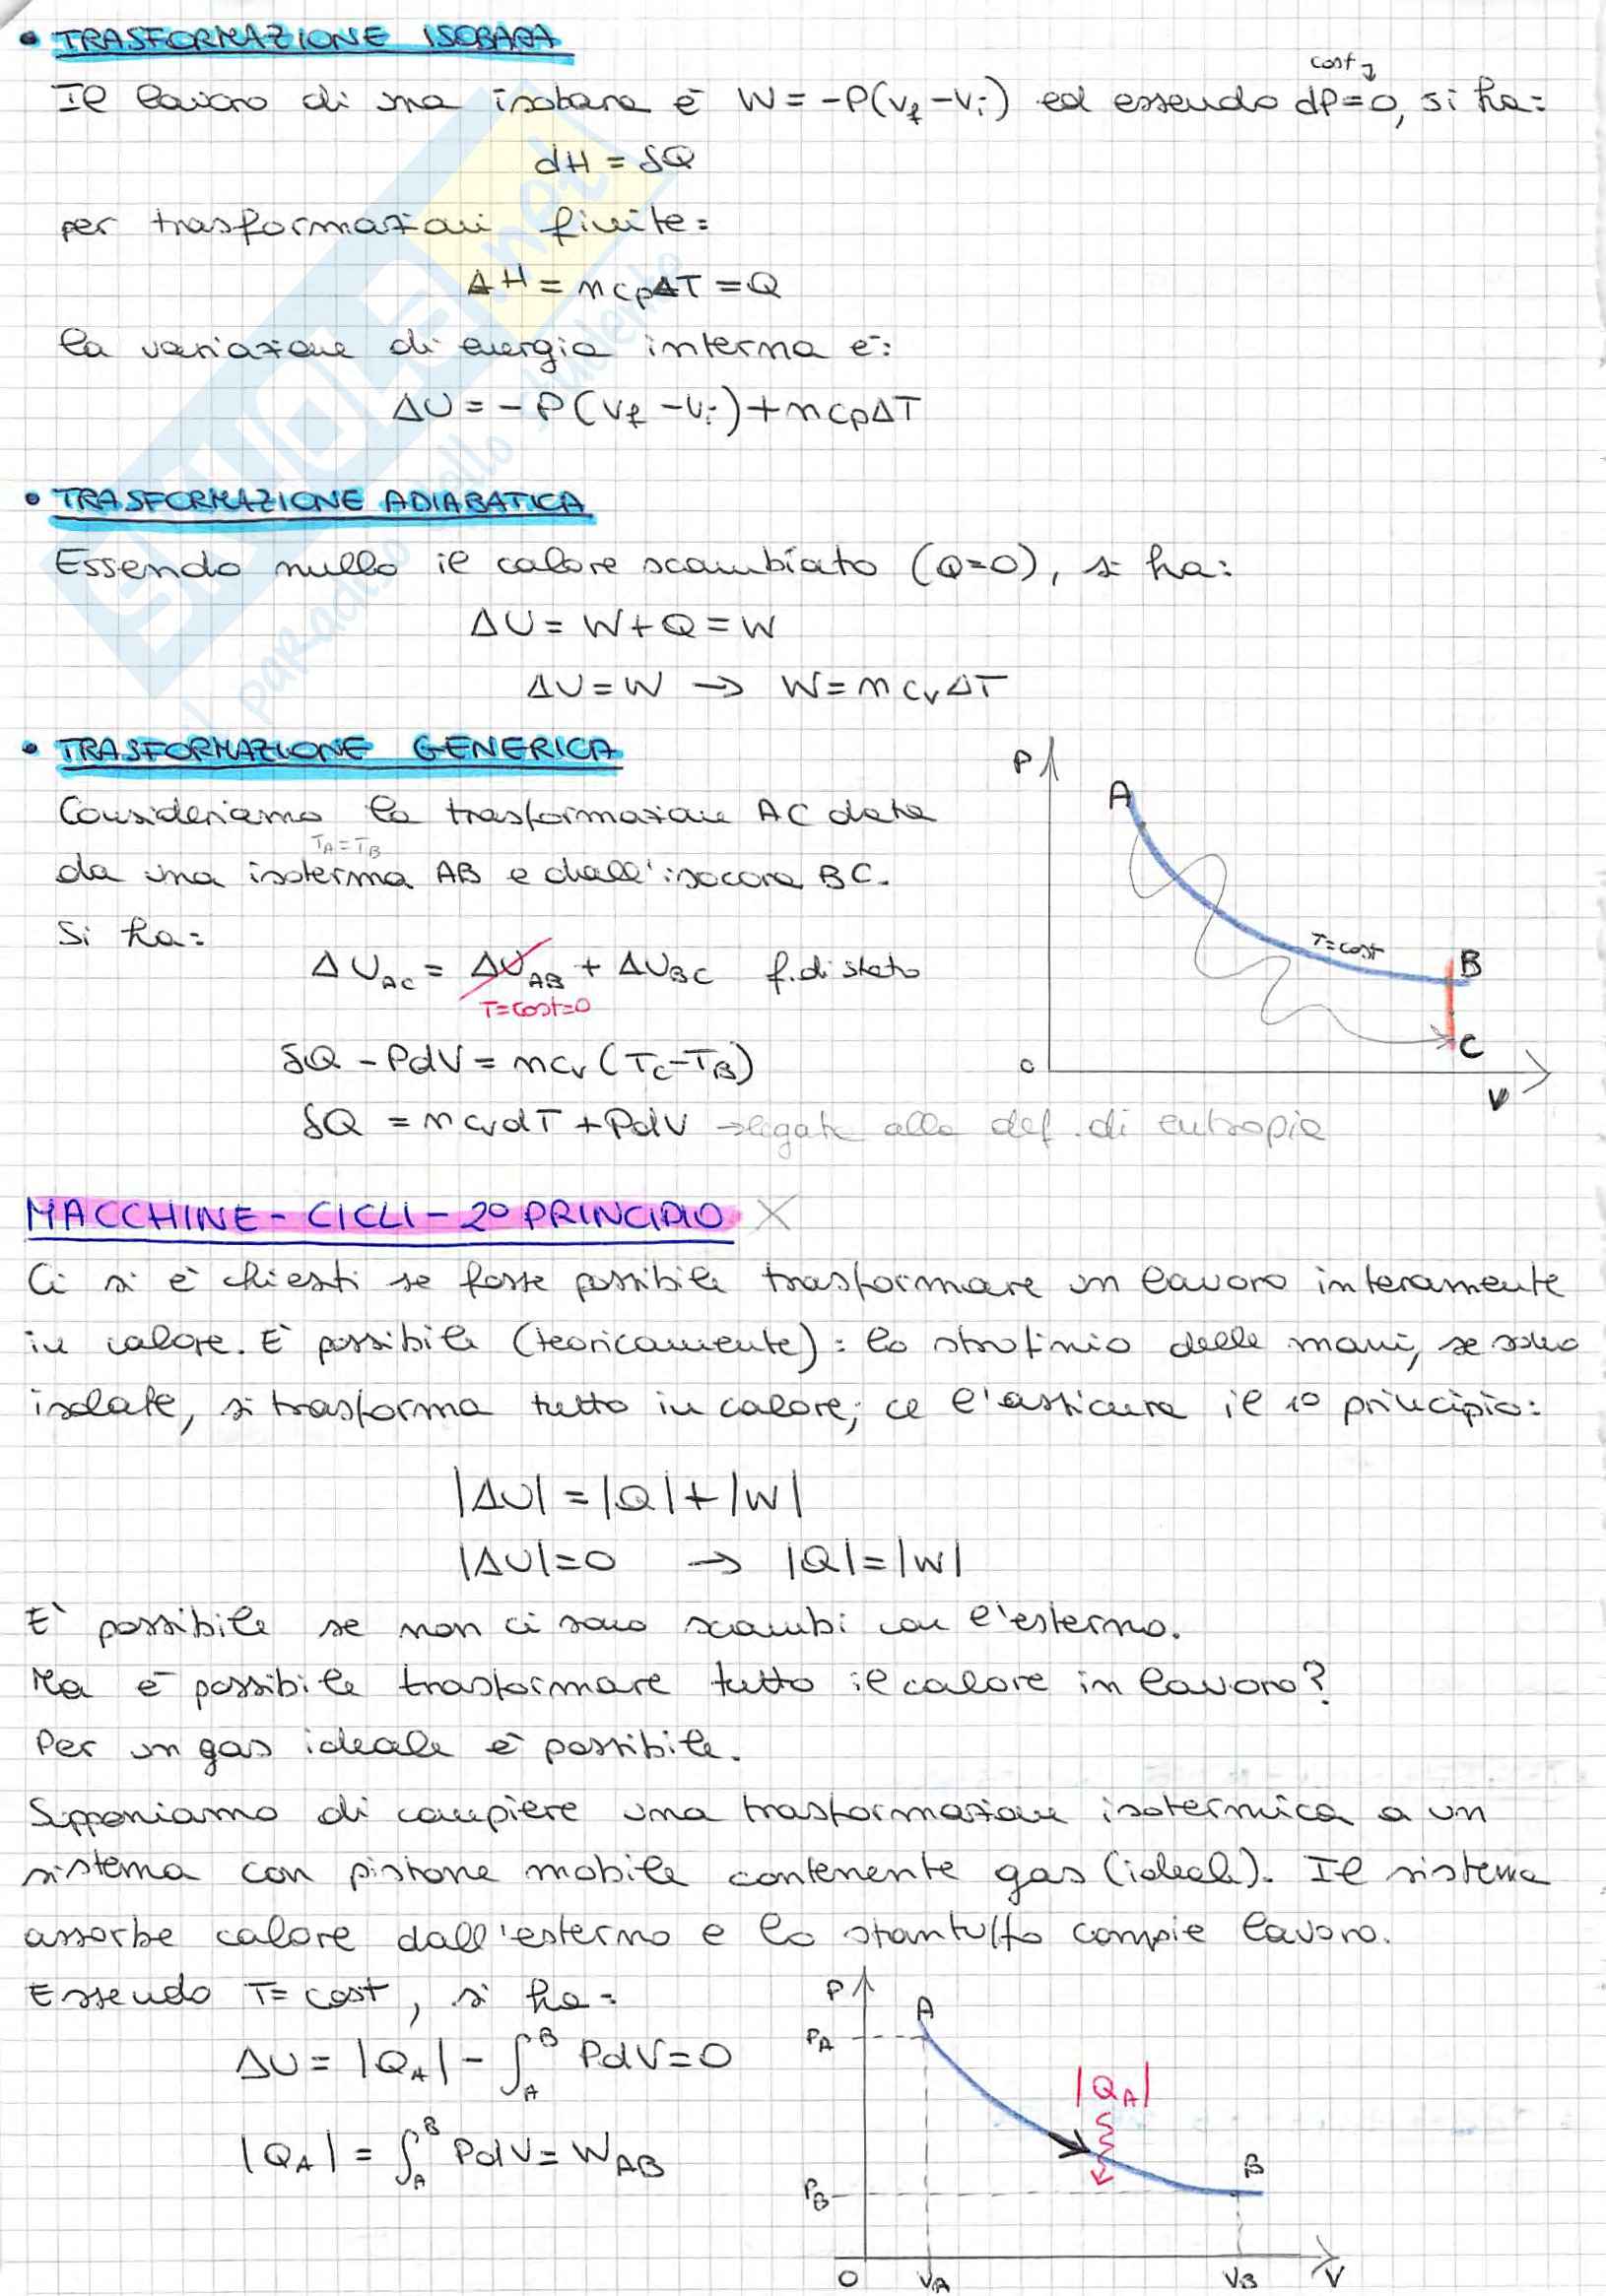 • TRASFORMAZIONE ISOBARA
cost
Il lavoro di una isobara è W = -P(Vf - Vi) ed essendo dP=0, si ha:
dH = δQ
per trasformazioni finite:
ΔH = ncpΔT = Q
la variazione di energia interna è:
ΔU = - P(Vf - Vi) + ncpΔT
• TRASFORMAZIONE ADIABATICA
Essendo nullo il calore scambiato (Q=0), si ha:
ΔU = W + Q = W
ΔU = W → W = ncvΔT
• TRASFORMAZIONE GENERICA
Consideriamo la trasformazione AC data
TA = TB
da una isoterma AB e dall'isocora BC.
Si ha:
ΔUAC = ΔUAB + ΔUBC f. di stato
T=cost=0
δQ - PdV = ncv (TC - TB)
δQ = ncvdT + PdV → legata alla def. di entropia
P
A
T=cost
B
C
0
V
MACCHINE - CICLI - 2° PRINCIPIO X
Ci si è chiesti se fosse possibile trasformare un lavoro interamente
in calore. È possibile (teoricamente): lo strofinio delle mani, se sono
isolate, si trasforma tutto in calore; ce l'assicura il 1° principio:
|ΔU| = |Q| + |W|
|ΔU| = 0 → |Q| = |W|
E' possibile se non ci sono scambi con l'esterno.
Ma è possibile trasformare tutto il calore in lavoro?
Per un gas ideale è possibile.
Supponiamo di compiere una trasformazione isotermica a un
sistema con pistone mobile contenente gas (ideale). Il sistema
assorbe calore dall'esterno e lo stantuffo compie lavoro.
Essendo T= cost, si ha:
ΔU = |QA| - ∫AB PdV = 0
|QA| = ∫AB PdV = WAB
P
A
PA
|QA|
B
PB
0 VA VB V
SKUOLA.net
il paradiso dello studente